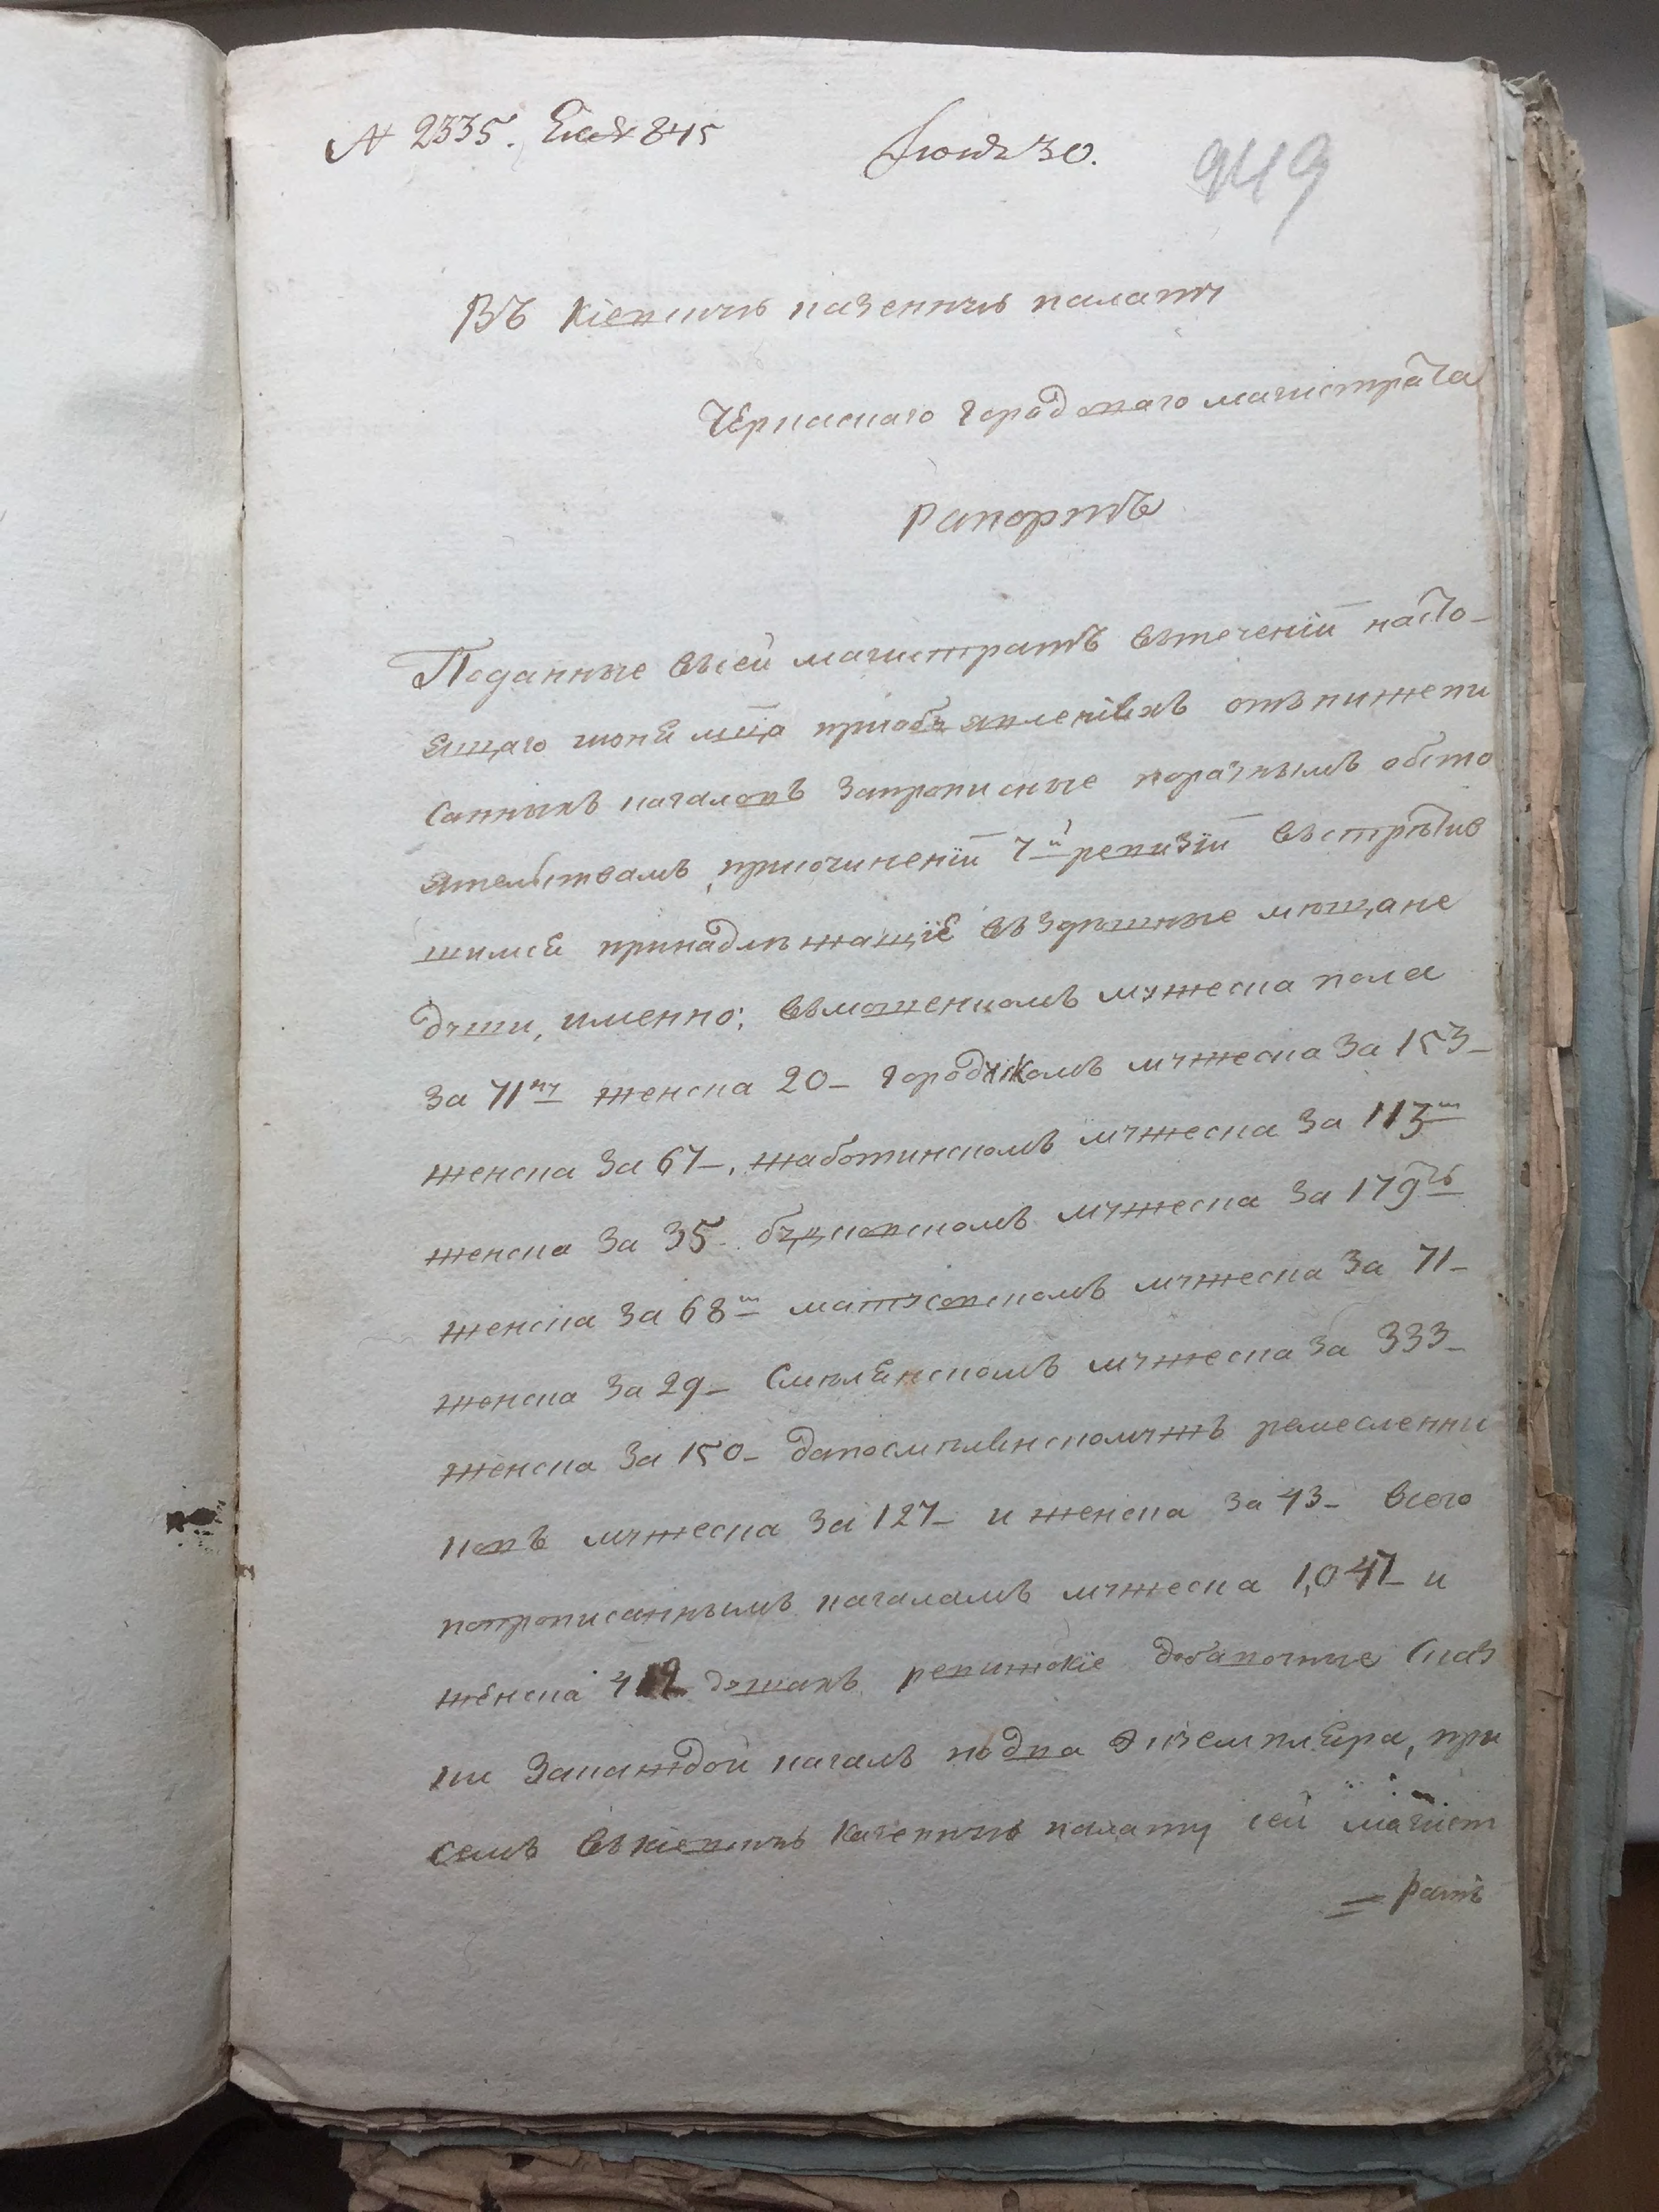 № 2335. 845 Июня 30. 949
Въ Кіевскую казенную палату
Черкаскаго городоваго магистрата
Рапортъ
Поданные въсей магистратъ втеченіи насто-
ящаго июня мца приобъявленіяхъ отънижепи
санныхъ кагаловъ запрописные поразнымъ обсто
ятелствамъ, присочиненіи 7й ревизіи въстретив
шимся принадлежащіе въздешные мещане
души, именно: въмошенскомъ мужеска пола
за 71му женска 20- Городискомъ мужеска за 153-
женска за 67-, жаботинскомъ мужеска за 113ш
женска за 35. буцковскомъ мужеска за 179ть
женска за 68ш матусовскомъ мужеска за 71-
женска за 29- Смелянскомъ мужеска за 333-
женска за 150- дапосмелянскомужъ ремесленни
ковъ мужеска за 127- и женска за 43- всего
попрописаннымъ кагаламъ мужеска 1,047- и
женска 412 душахъ ревижскіе добавочные сказ
ки закаждой кагалъ подва экземпляра, при
семъ въкіевскую казенную палату сей магист
= ратъ